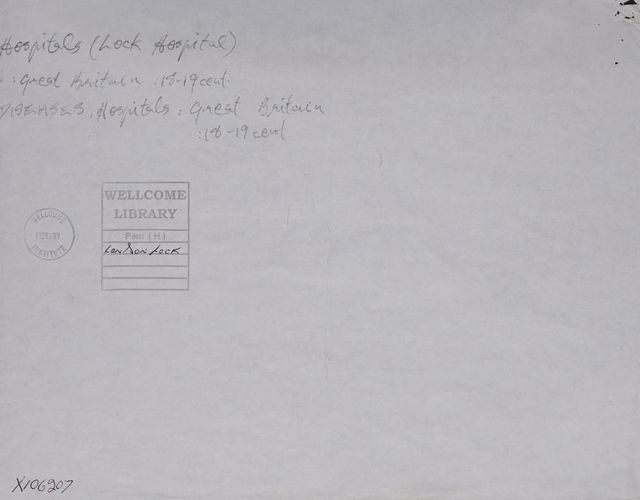 Hospitals (Lock Hospital)
: Great Britain :18-19 cent.
DISEASES, Hospitals : Great Britain
:18-19 cent
WELLCOME
LIBRARY
Pam (H)
London Lock
WELLCOME
LIBRARY
INSTITUTE
X106207